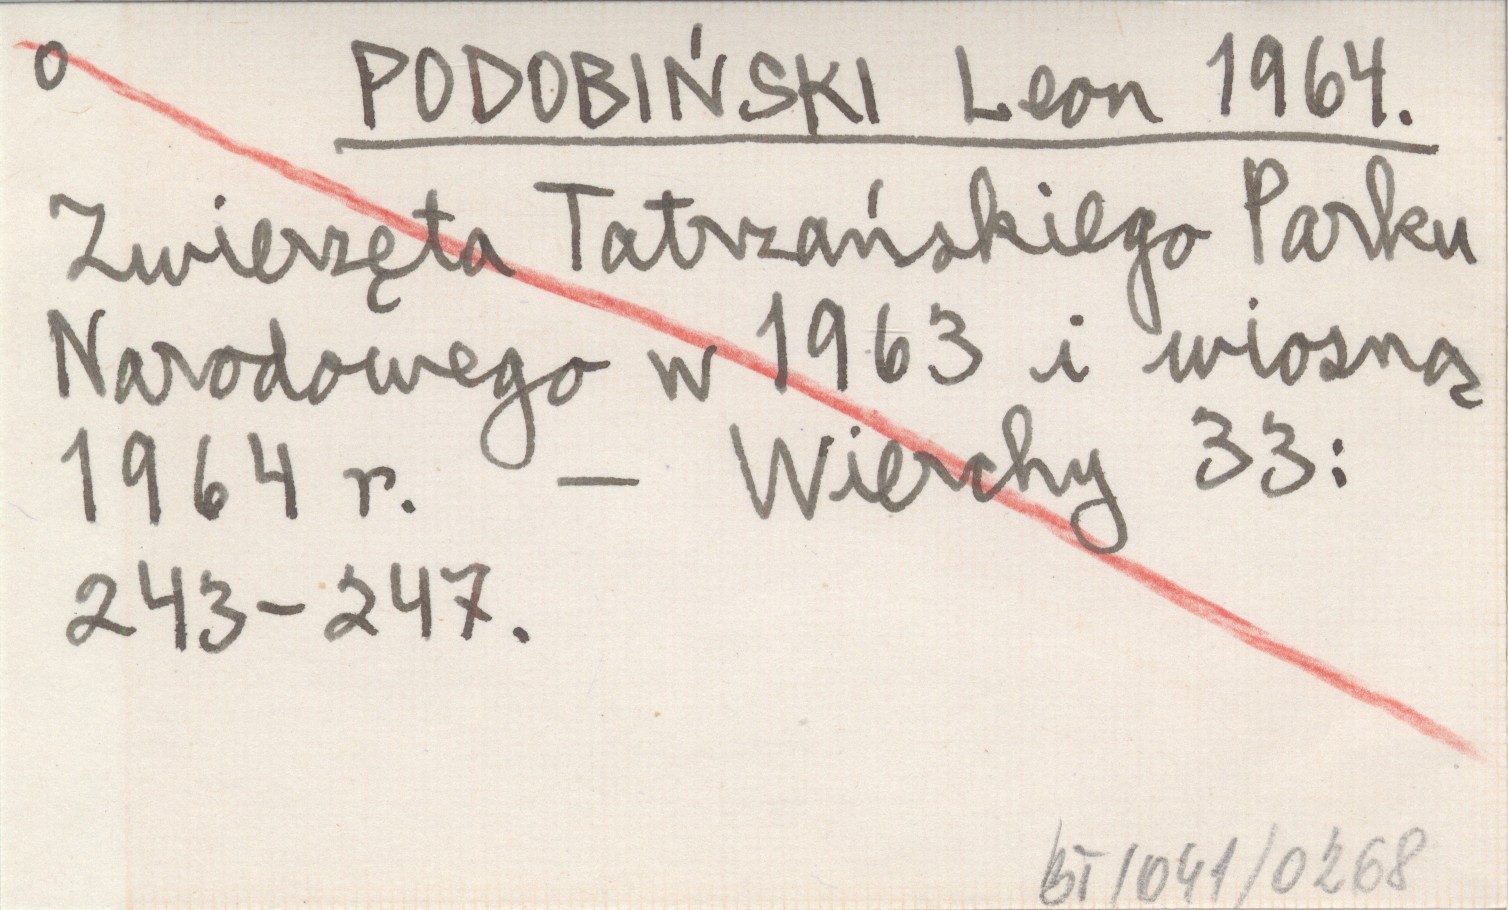 o PODOBIŃSKI Leon 1964.
Zwierzęta Tatrzańskiego Parku
Narodowego w 1963 i wiosną
1964 r. — Wierchy 33:
243-247.
BT/041/0268